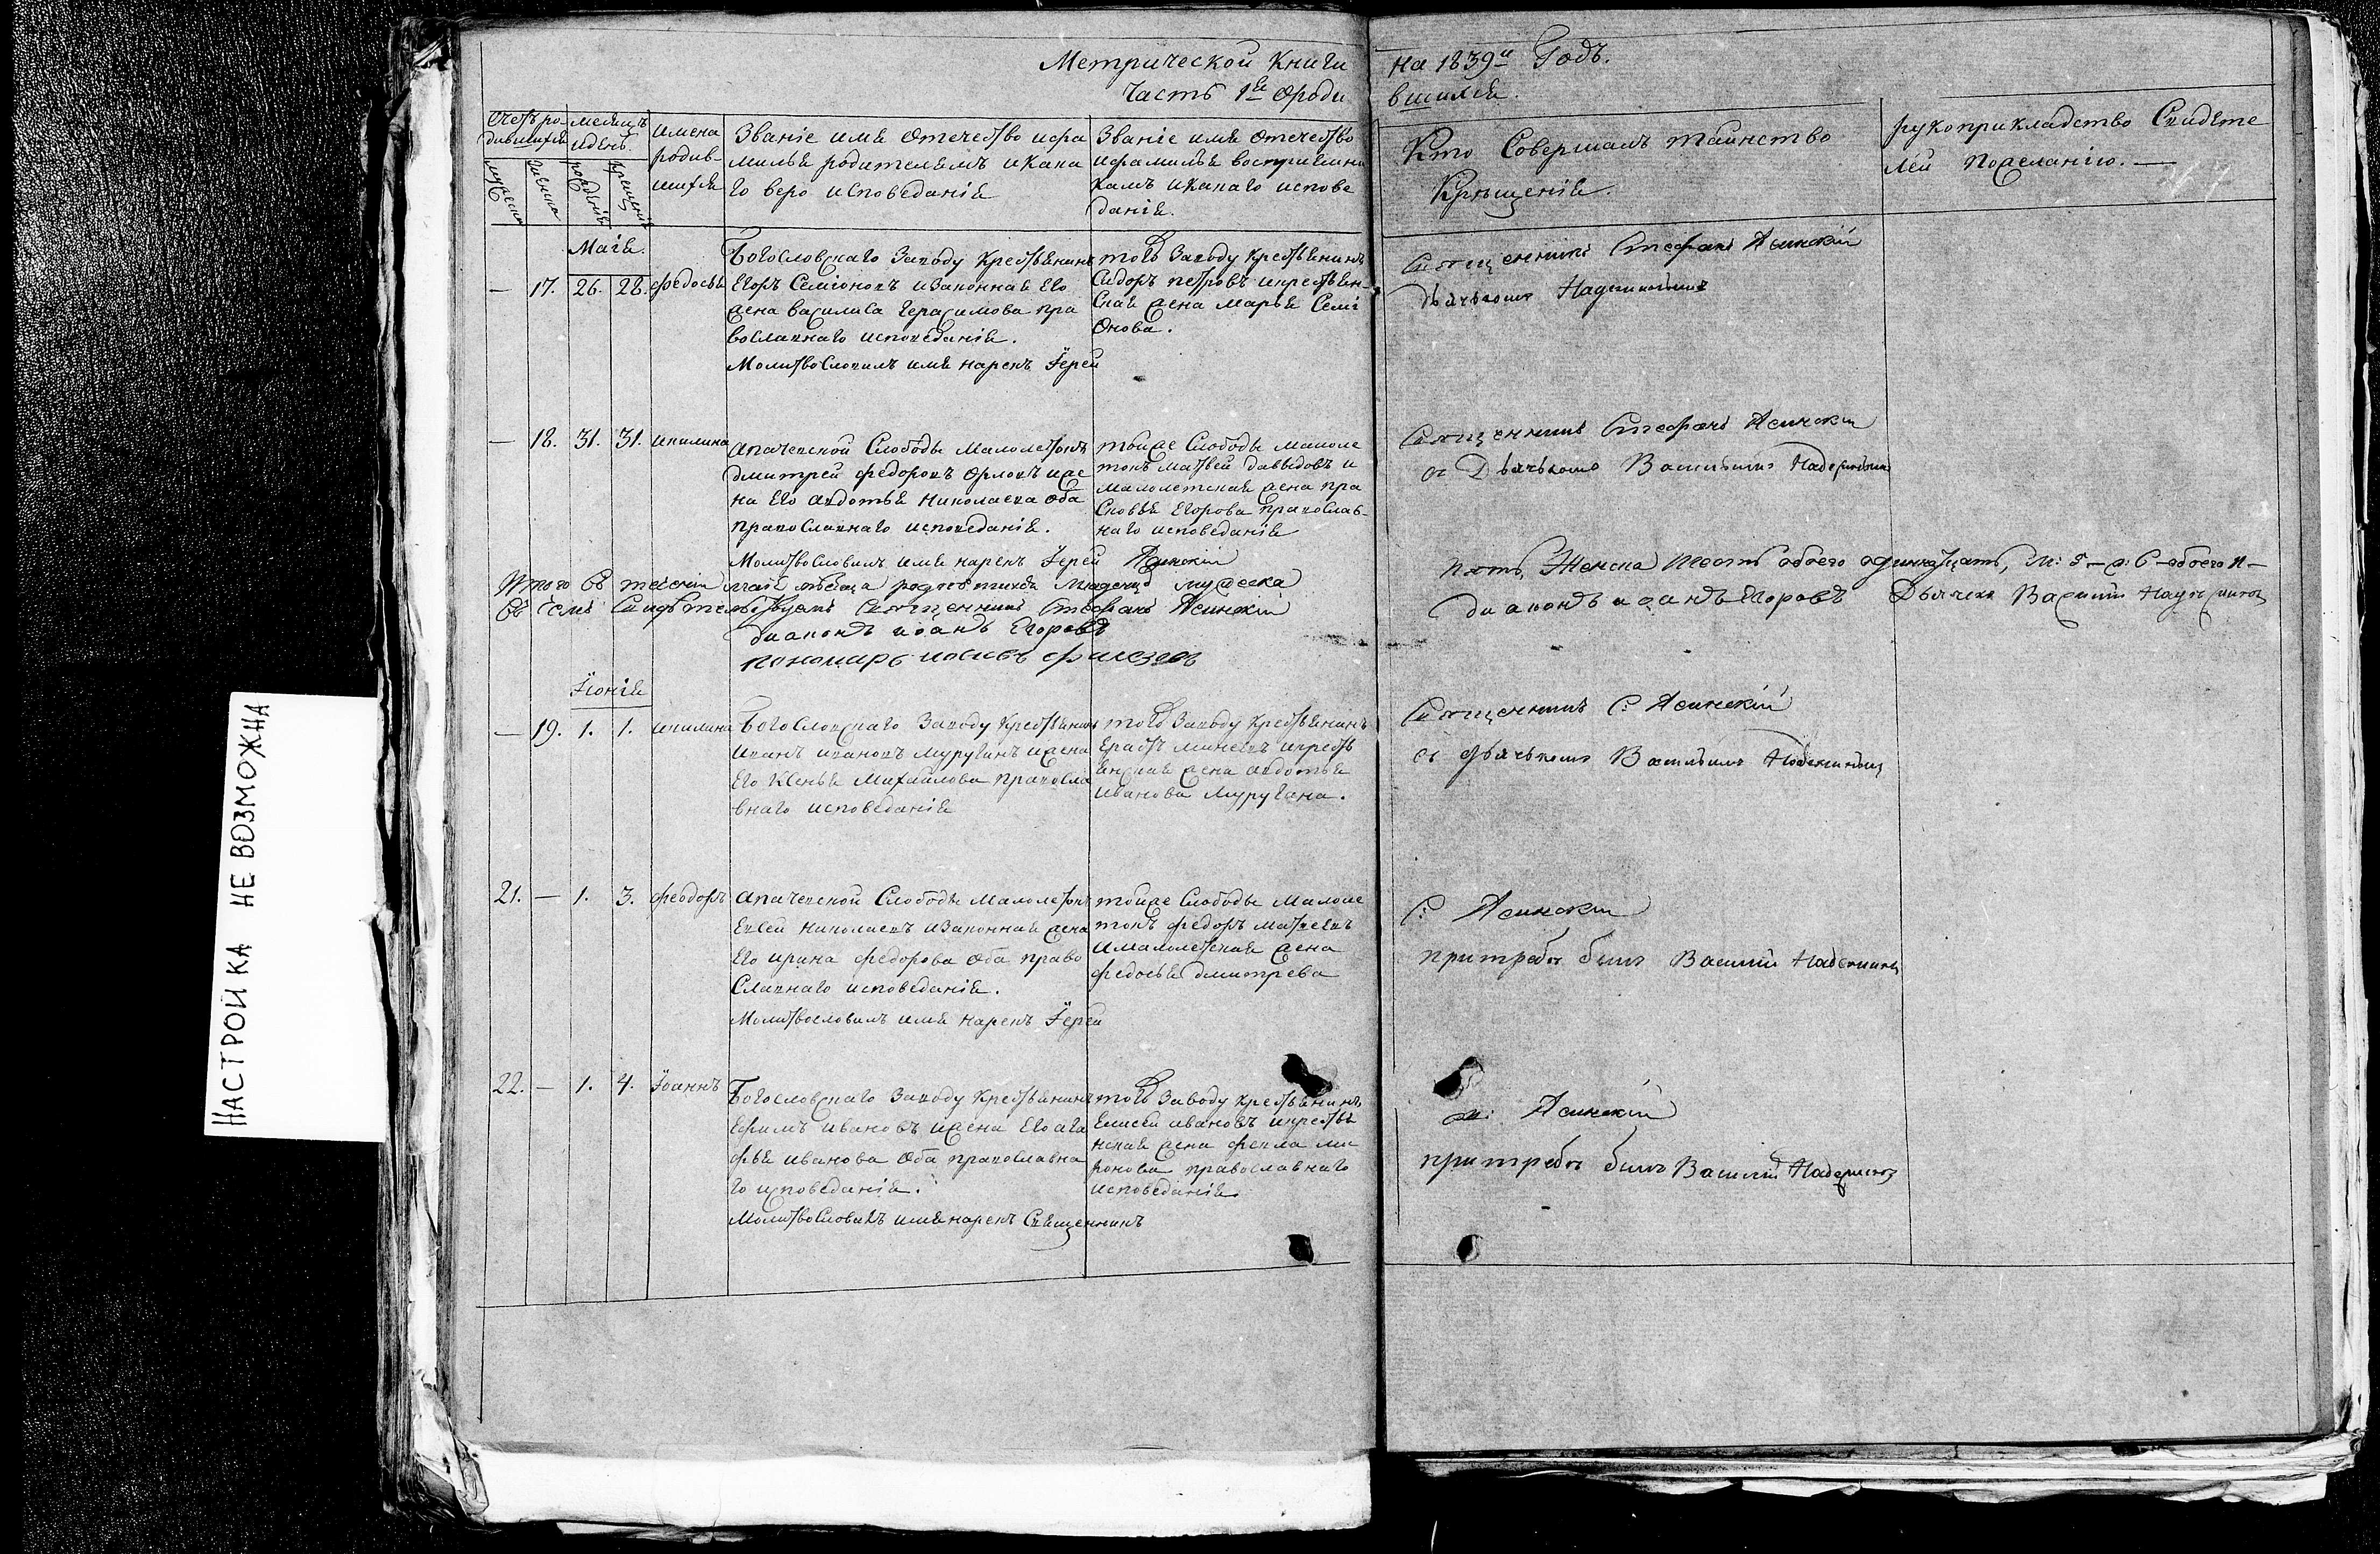 Метрической Книги
Часть 1я ороди
на 1839й Годъ.
вшихся.
Счетъ ро-
дившихся
мужеска
женска
месяцъ
идень.
рожденія
крещенія
имена
родив-
шихся
Званіе имя отечество ифа
милья родителямъ икака
го веро исповеданія
Званіе имя отечество
ифамилья восприемни
камъ икакаго испове
данія.
Кто Совершалъ таинство
Крещенія
рукоприкладство Свидете
лей пожеланію. —
Маія.
— 17. 26. 28. федосья
Богословскаго Заводу Крестьянинъ
Егоръ Семіоновъ изаконная Его
жена василиса герасимова пра
вославнаго исповеданія.
Молитвословилъ имя нарекъ Їерей
того Заводу Крестьянинъ
Сидоръ петровъ икрестьян-
ская жена марья Семі
онова.
Священникъ Стефанъ Ясинскій
— 18. 31. 31. акилина
апачевской Слободы Малолетокъ
дмитрей федоровъ орловъ иже
на Его авдотья николаева оба
православнаго исповеданія.
Молитвословилъ имя нарекъ Їерей Ясинскій
тойже Слободы малоле
токъ матвей давыдовъ и
малолетская жена пра
сковья Егорова православ-
наго исповеданія
Священникъ Стефанъ Ясинскій
съ Дьячькомъ Васильемъ
Итого въ теченіи маія месяца родившихся младенцов мужеска
пять, Женска шесть обоего одинадцать, м: 5 – ж: 6 – обоего 11 –
Въ чемъ Свидетельствуемъ Священникъ Стефанъ Ясинскій
диаконъ иоанъ Егоровъ
диаконъ иоанъ Егоровъ Дьячекъ Василій
пономарь
Їюнія
— 19. 1. 1. акилина
Богословскаго Заводу Крестьянинъ
иванъ ивановъ муругинъ ижена
Его Ксенья Михайлова правосла
внаго исповеданія
того Заводу Крестьянинъ
Ерастъ минеевъ икресть
янская жена авдотья
иванова Муругина.
Священникъ С: Ясинскій
съ дьячькомъ Васильемъ
21. — 1. 3. феодоръ
апачевской Слободы Малолетокъ
Евсей николаевъ изаконная жена
Его ирина федорова оба право
славнаго исповеданія.
Молитвословилъ имя нарекъ Їерей
тойже Слободы Малоле
токъ федоръ матвеевъ
ималолетская жена
федосья дмитрева
С: Ясинскій
притребе былъ Василій
22. — 1. 4. Їоаннъ
Богословскаго Заводу Крестьянинъ
Ефимъ ивановъ ижена Его ага
фья иванова оба православна
го исповеданія.
Молитвословилъ имя нарекъ Священникъ
того Заводу Крестьянинъ
Елисей ивановъ икрестья
нская жена фекла ми
ронова православнаго
исповеданія
Ясинскій
притребе былъ Василій
НАСТРОЙКА НЕ ВОЗМОЖНА